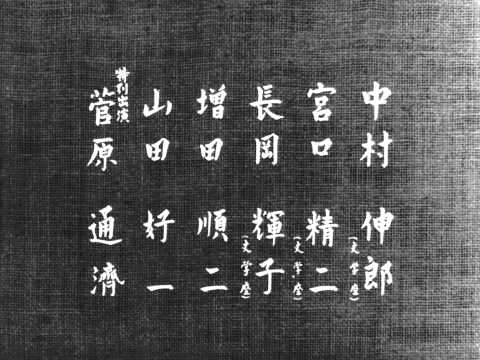 中村伸郎
(文学座)
宮口精二
(文学座)
長岡輝子
(文学座)
増田順二
山田好一
特別出演
菅原通濟